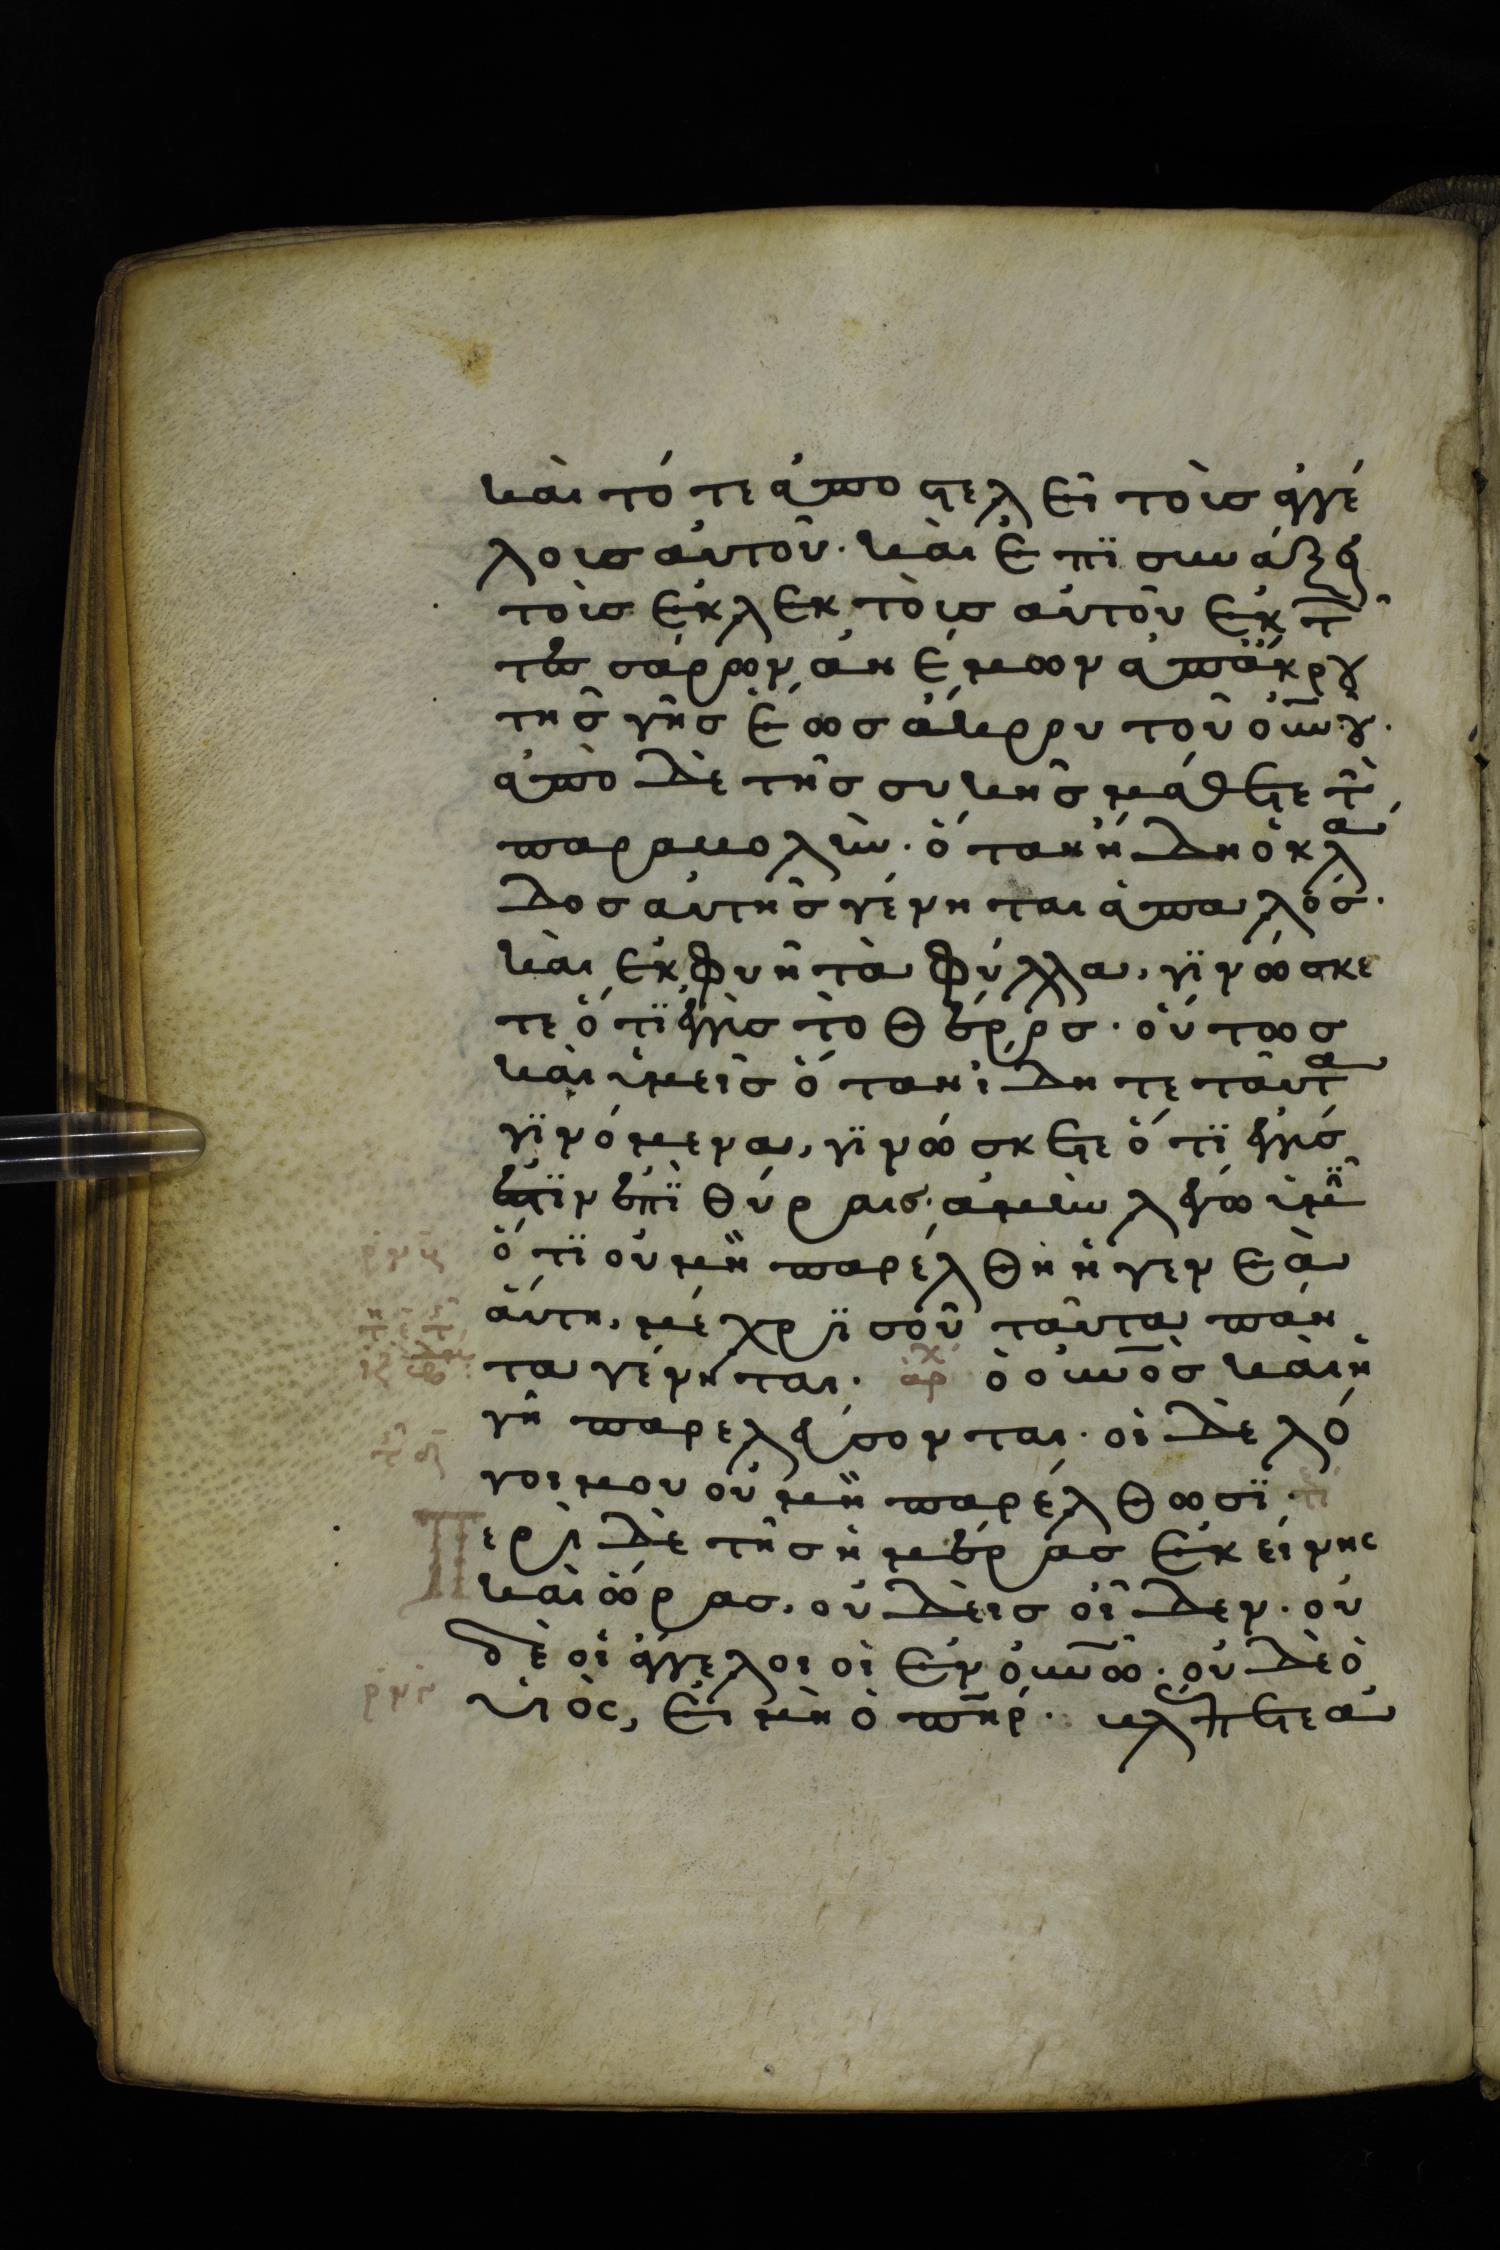 καὶ τότε ἀποστελεῖ τοὺς ἀγγέ
λους αὐτοῦ· καὶ ἐπϊσυνάξει
τοὺς ἐκλεκτοὺς αὐτοῦ ἐκ τῶν
τεσσάρων ἀνέμων ἀπἄκρου
τῆς γῆς ἕως ἄκρου τοῦ οὐνοῦ·
ἀπὸ δὲ τῆς συκῆς μάθετε τὴν
παραβολὴν· ὅταν ἤδη ὁ κλά
δος αὐτῆς γένηται ἁπαλός·
καὶ ἐκφυῆ τὰ φύλλα, γϊνώσκε
τε ὅτϊ ἐγγὺς τὸ θέρος· οὕτως
καὶ ὑμεῖς ὅταν ἴδητε ταῦτα
γϊνόμενα, γϊνώσκετε ὅτϊ ἐγγύς
ἐστϊν ἐπϊ θύραις· ἀμὴν λέγω ὑμῖν
ὅτϊ οὐ μὴ παρέλθη ἡ γενεὰ
αὕτη, μέχρϊς οὗ ταῦτα πάν
τα γένηται· ἀρχ ὁ οὐνὸς καὶ ἡ
γῆ παρελεύσονται· οἱ δὲ λό
γοι μου οὐ μὴ παρέλθωσϊ·
Περὶ δὲ τῆς ἡμέρας ἐκείνης
καὶ ὥρας, οὐδεὶς οἶδεν· οὐ
δὲ οἱ ἄγγελοι οἱ ἐν οὐνῶ· οὐδὲ ὁ
υἱὸς, εἰ μὴ ὁ πηρ· βλέπετε ἀ